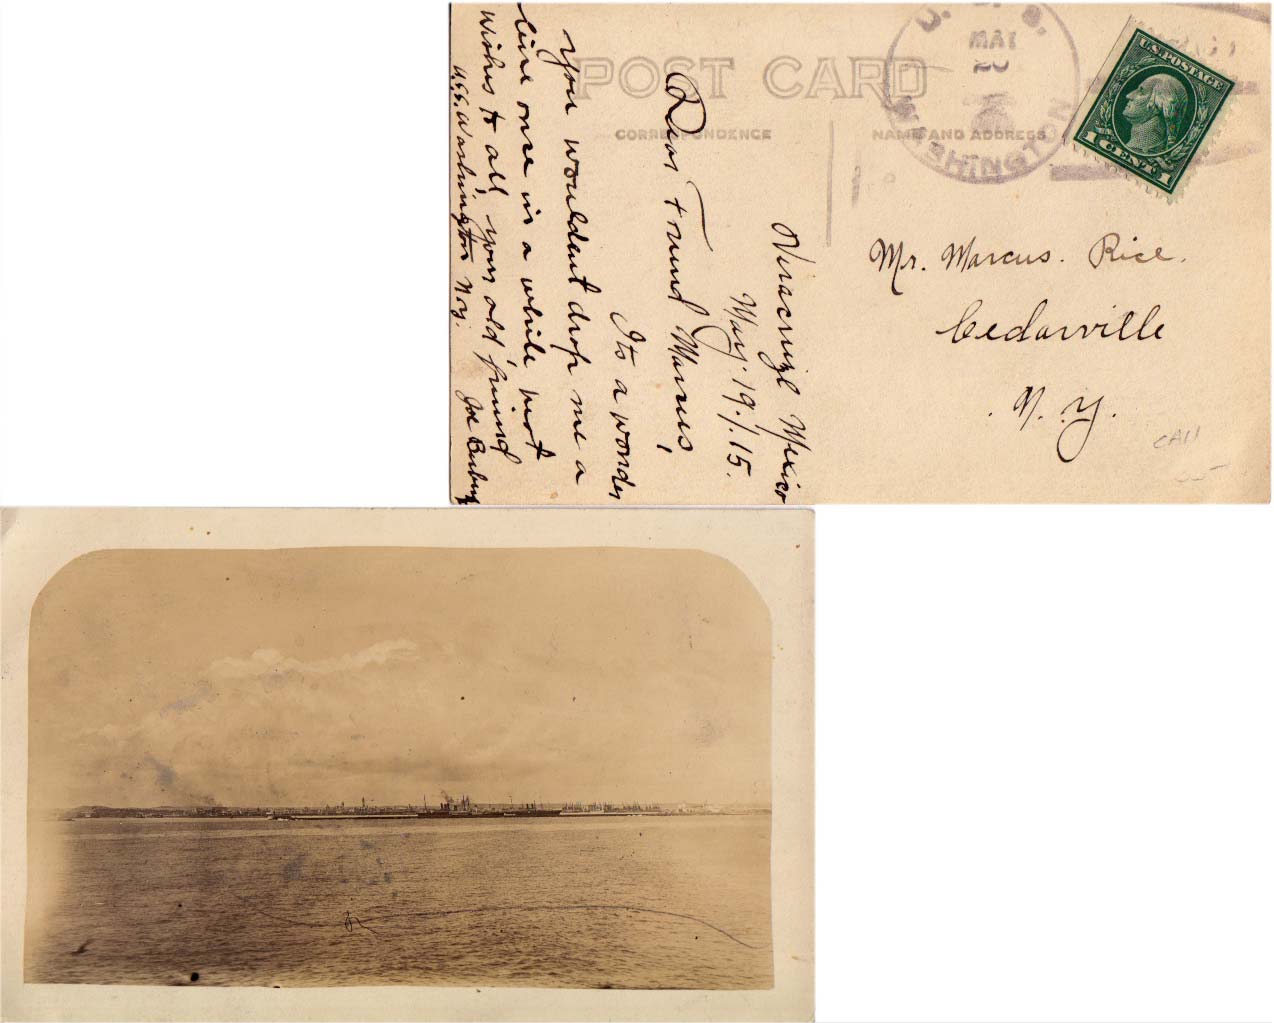 POST CARD
CORRESPONDENCE
NAME AND ADDRESS
U. S. S.
MAY
WASHINGTON
U.S. POSTAGE
1 CENT 1
Veracruz Mexico
May. 19./15.
Dear Friend Marcus,
Its a wonder
you wouldent drop me a
line once in a while best
wishes to all, your old friend
U.S.S. Washington Joe
Mr. Marcus. Rice.
Cedarville
. N. Y.